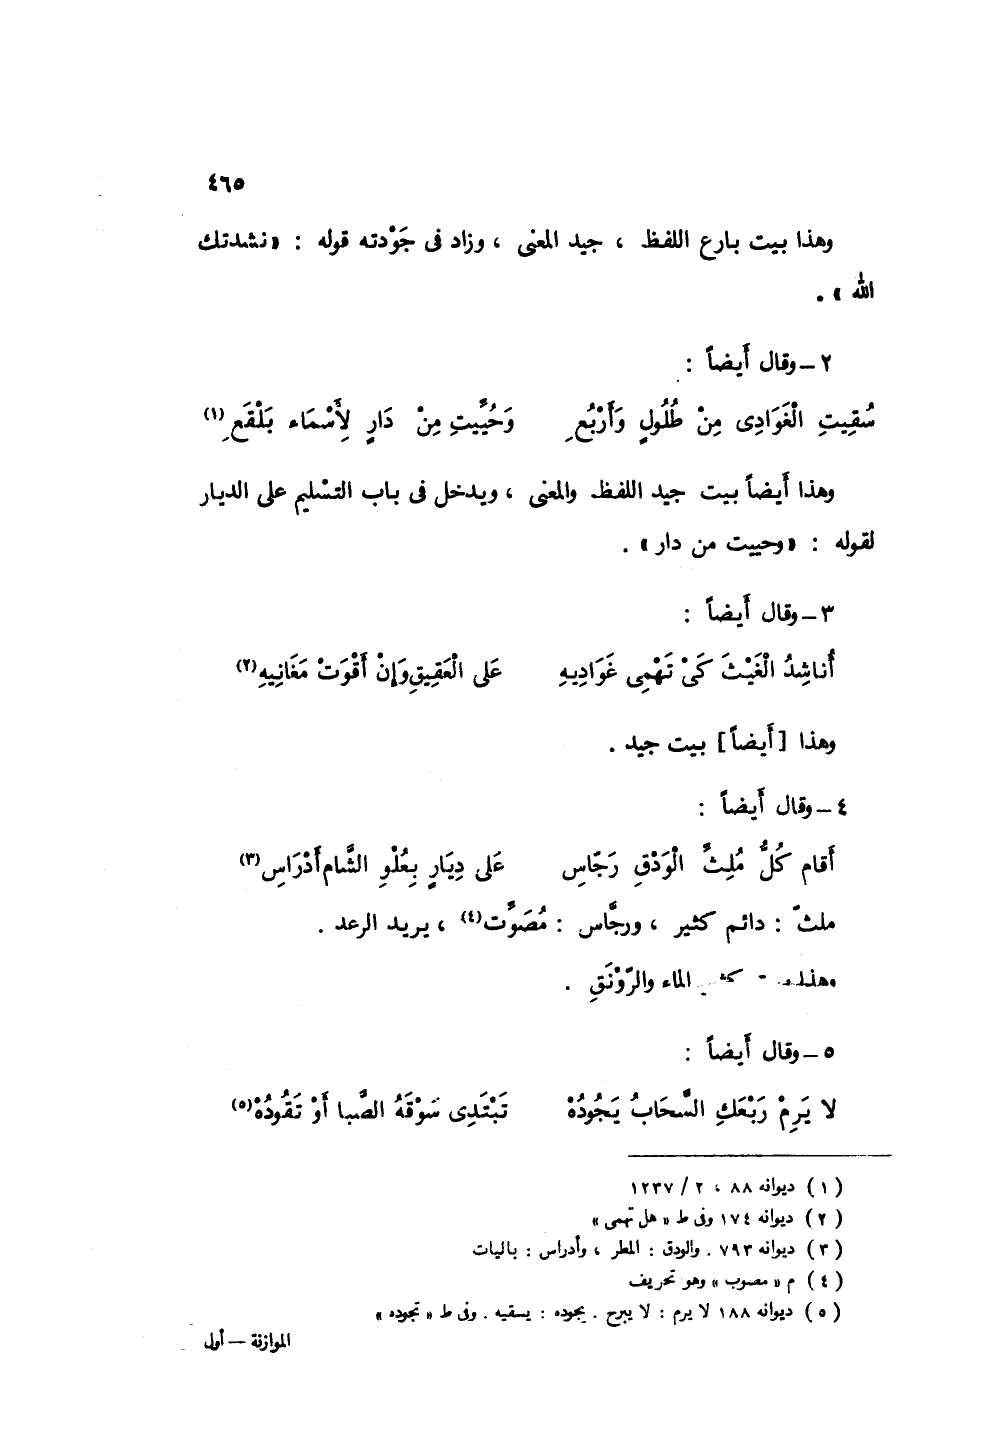 ٤٦٥
وهذا بيت بارع اللفظ ، جيد المعنى ، وزاد فى جَوْدته قوله : «نشدتك
الله » .
٢ – وقال أَيضاً :
سُقِيتِ الْغَوَادِى مِنْ طُلُولٍ وَأَرْبُعِ وَحُيِّيتِ مِنْ دَارٍ لِأَسْمَاء بَلْقَعِ (١)
وهذا أَيضاً بيت جيد اللفظ والمعنى ، ويدخل فى باب التسْليم على الديار
لقوله : «وحييت من دار» .
٣ – وقال أَيضاً :
أُناشِدُ الْغَيْثَ كَىْ تَهْمِى غَوَادِيهِ عَلى الْعَقِيقِ وَإِنْ أَقْوَتْ مَغَانِيهِ (٢)
وهذا [أَيضاً] بيت جيد .
٤ – وقال أَيضاً :
أَقام كُلُّ مُلِثِّ الْوَدْقِ رَجّاسِ عَلى دِيَارٍ بِعُلْوِ الشَّام أَدْرَاسِ (٣)
ملثّ : دائم كثير ، ورجَّاس : مُصَوِّت (٤) ، يريد الرعد .
وهذا كثير الماء والرّوْنَقِ .
٥ – وقال أَيضاً :
لا يَرِمْ رَبْعَكِ السَّحَابُ يَجُودُهْ تَبْتَدِى سَوْقَهُ الصَّبا أَوْ تَقُودُهْ (٥)
(١) ديوانه ٨٨ ، ٢ / ١٢٣٧
(٢) ديوانه ١٧٤ وفى ط « هل تهمى »
(٣) ديوانه ٧٩٣ . والودق : المطر ، وأدراس : باليات
(٤) م « مصوب » وهو تحريف
(٥) ديوانه ١٨٨ لا يرم : لا يبرح . يجوده : يسقيه . وفى ط « تجوده »
الموازنة – أول